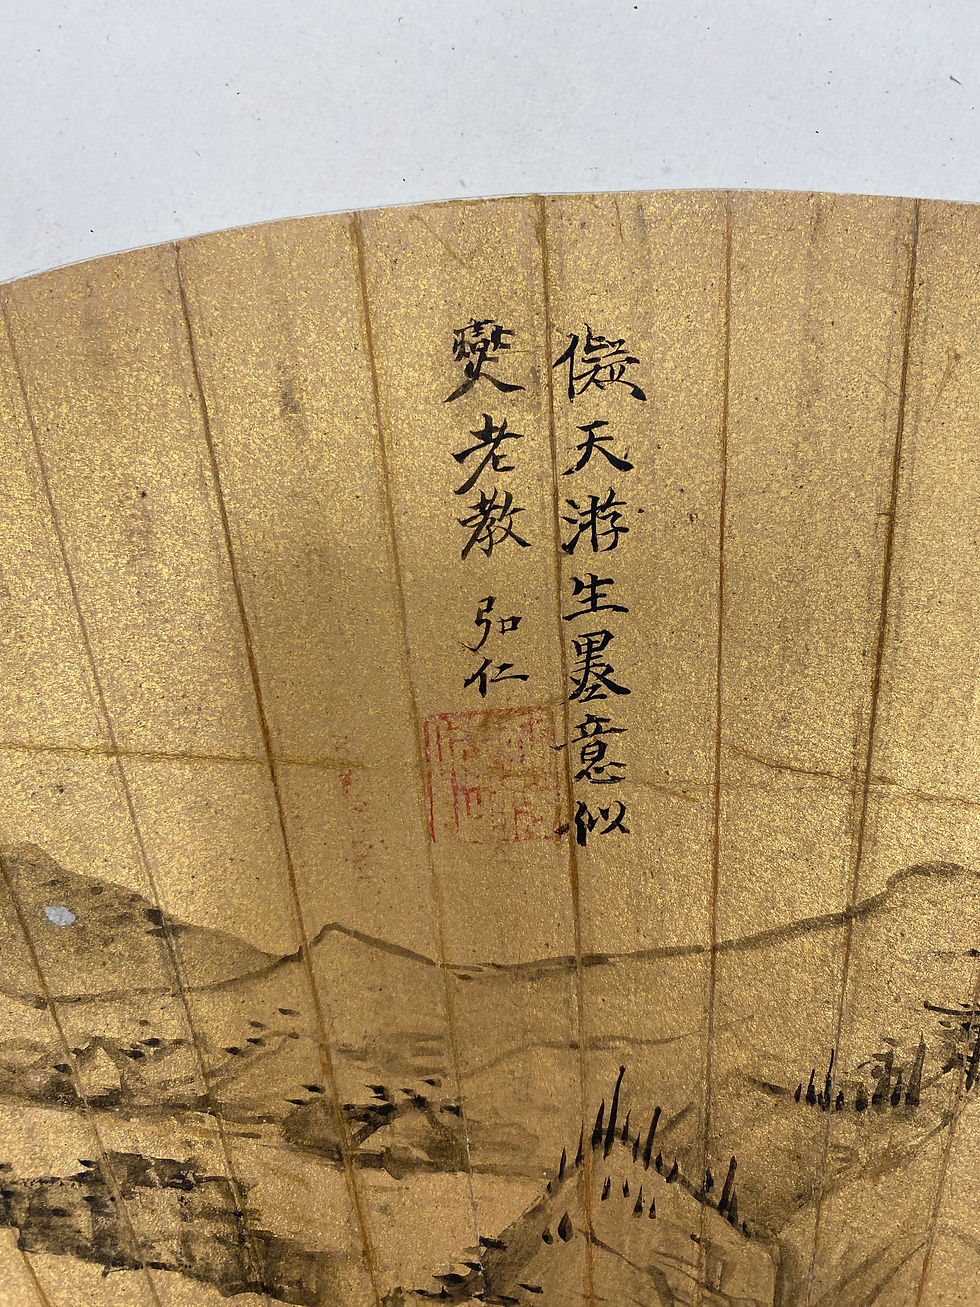 儗天游生墨意似
燮老教 弘仁